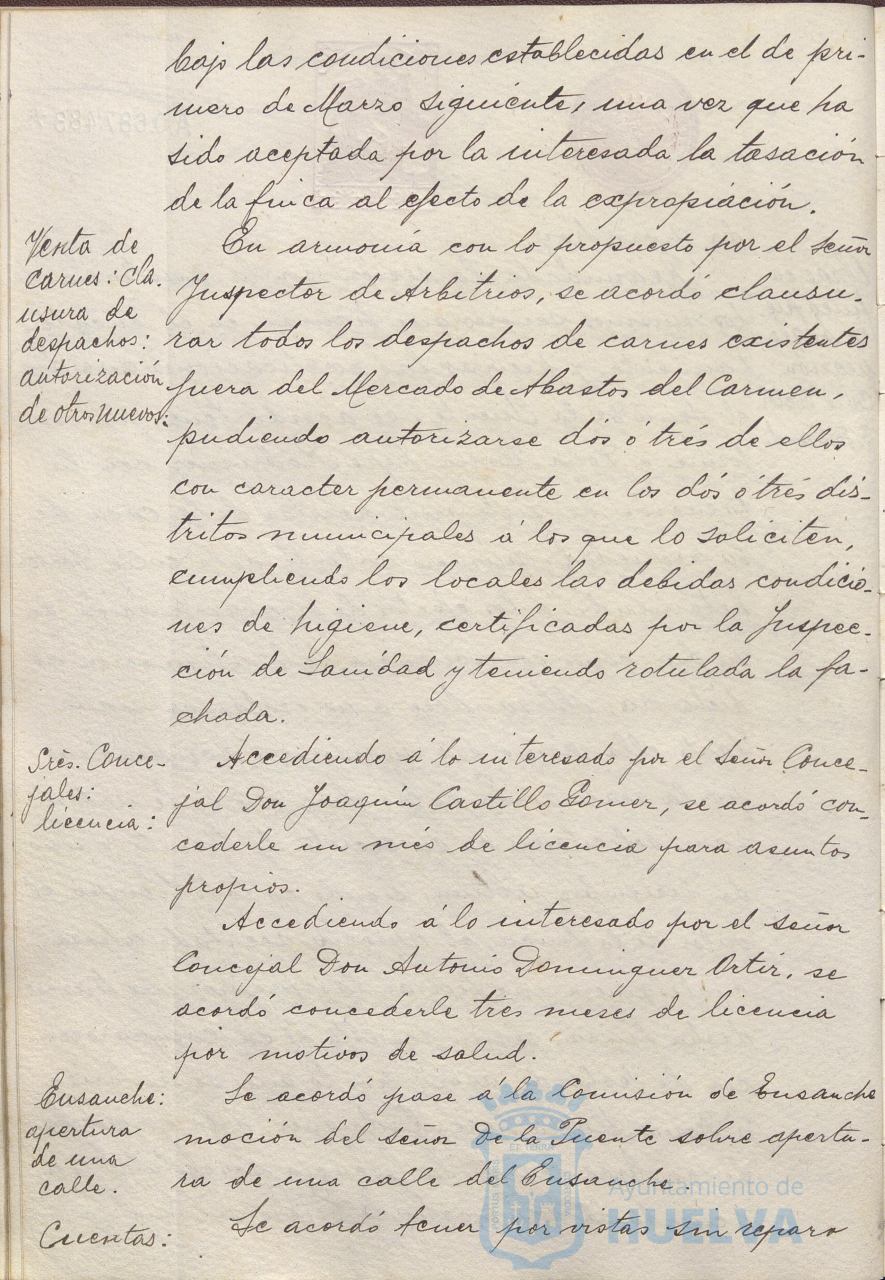 bajo las condiciones establecidas en el de pri-
mero de Marzo siguiente, una vez que ha
sido aceptada por la interesada la tasación
de la finca al efecto de la expropiación.
Venta de
carnes: cla-
usura de
despachos:
autorización
de otros nuevos:
En armonía con lo propuesto por el señor
Inspector de Arbitrios, se acordó clausu-
rar todos los despachos de carnes existentes
fuera del Mercado de Abastos del Carmen,
pudiendo autorizarse dós ó trés de ellos
con caracter permanente en los dós ó trés dis-
tritos municipales á los que lo soliciten,
cumpliendo los locales las debidas condicio-
nes de higiene, certificadas por la Inspec-
ción de Sanidad y teniendo rotulada la fa-
chada.
Srès. Conce-
jales:
licencia:
Accediendo á lo interesado por el señor Conce-
jal Don Joaquín Castillo Gomez, se acordó con-
cederle un més de licencia para asuntos
propios.
Accediendo á lo interesado por el señor
Concejal Don Antonio Dominguez Ortiz, se
acordó concederle tres meses de licencia
por motivos de salud.
Ensanche:
apertura
de una
calle.
Se acordó pase á la Comisión de Ensanche
moción del señor De la Puente sobre apertu-
ra de una calle del Ensanche.
Cuentas:
Se acordó tener por vistas sin reparo
Ayuntamiento de
HUELVA